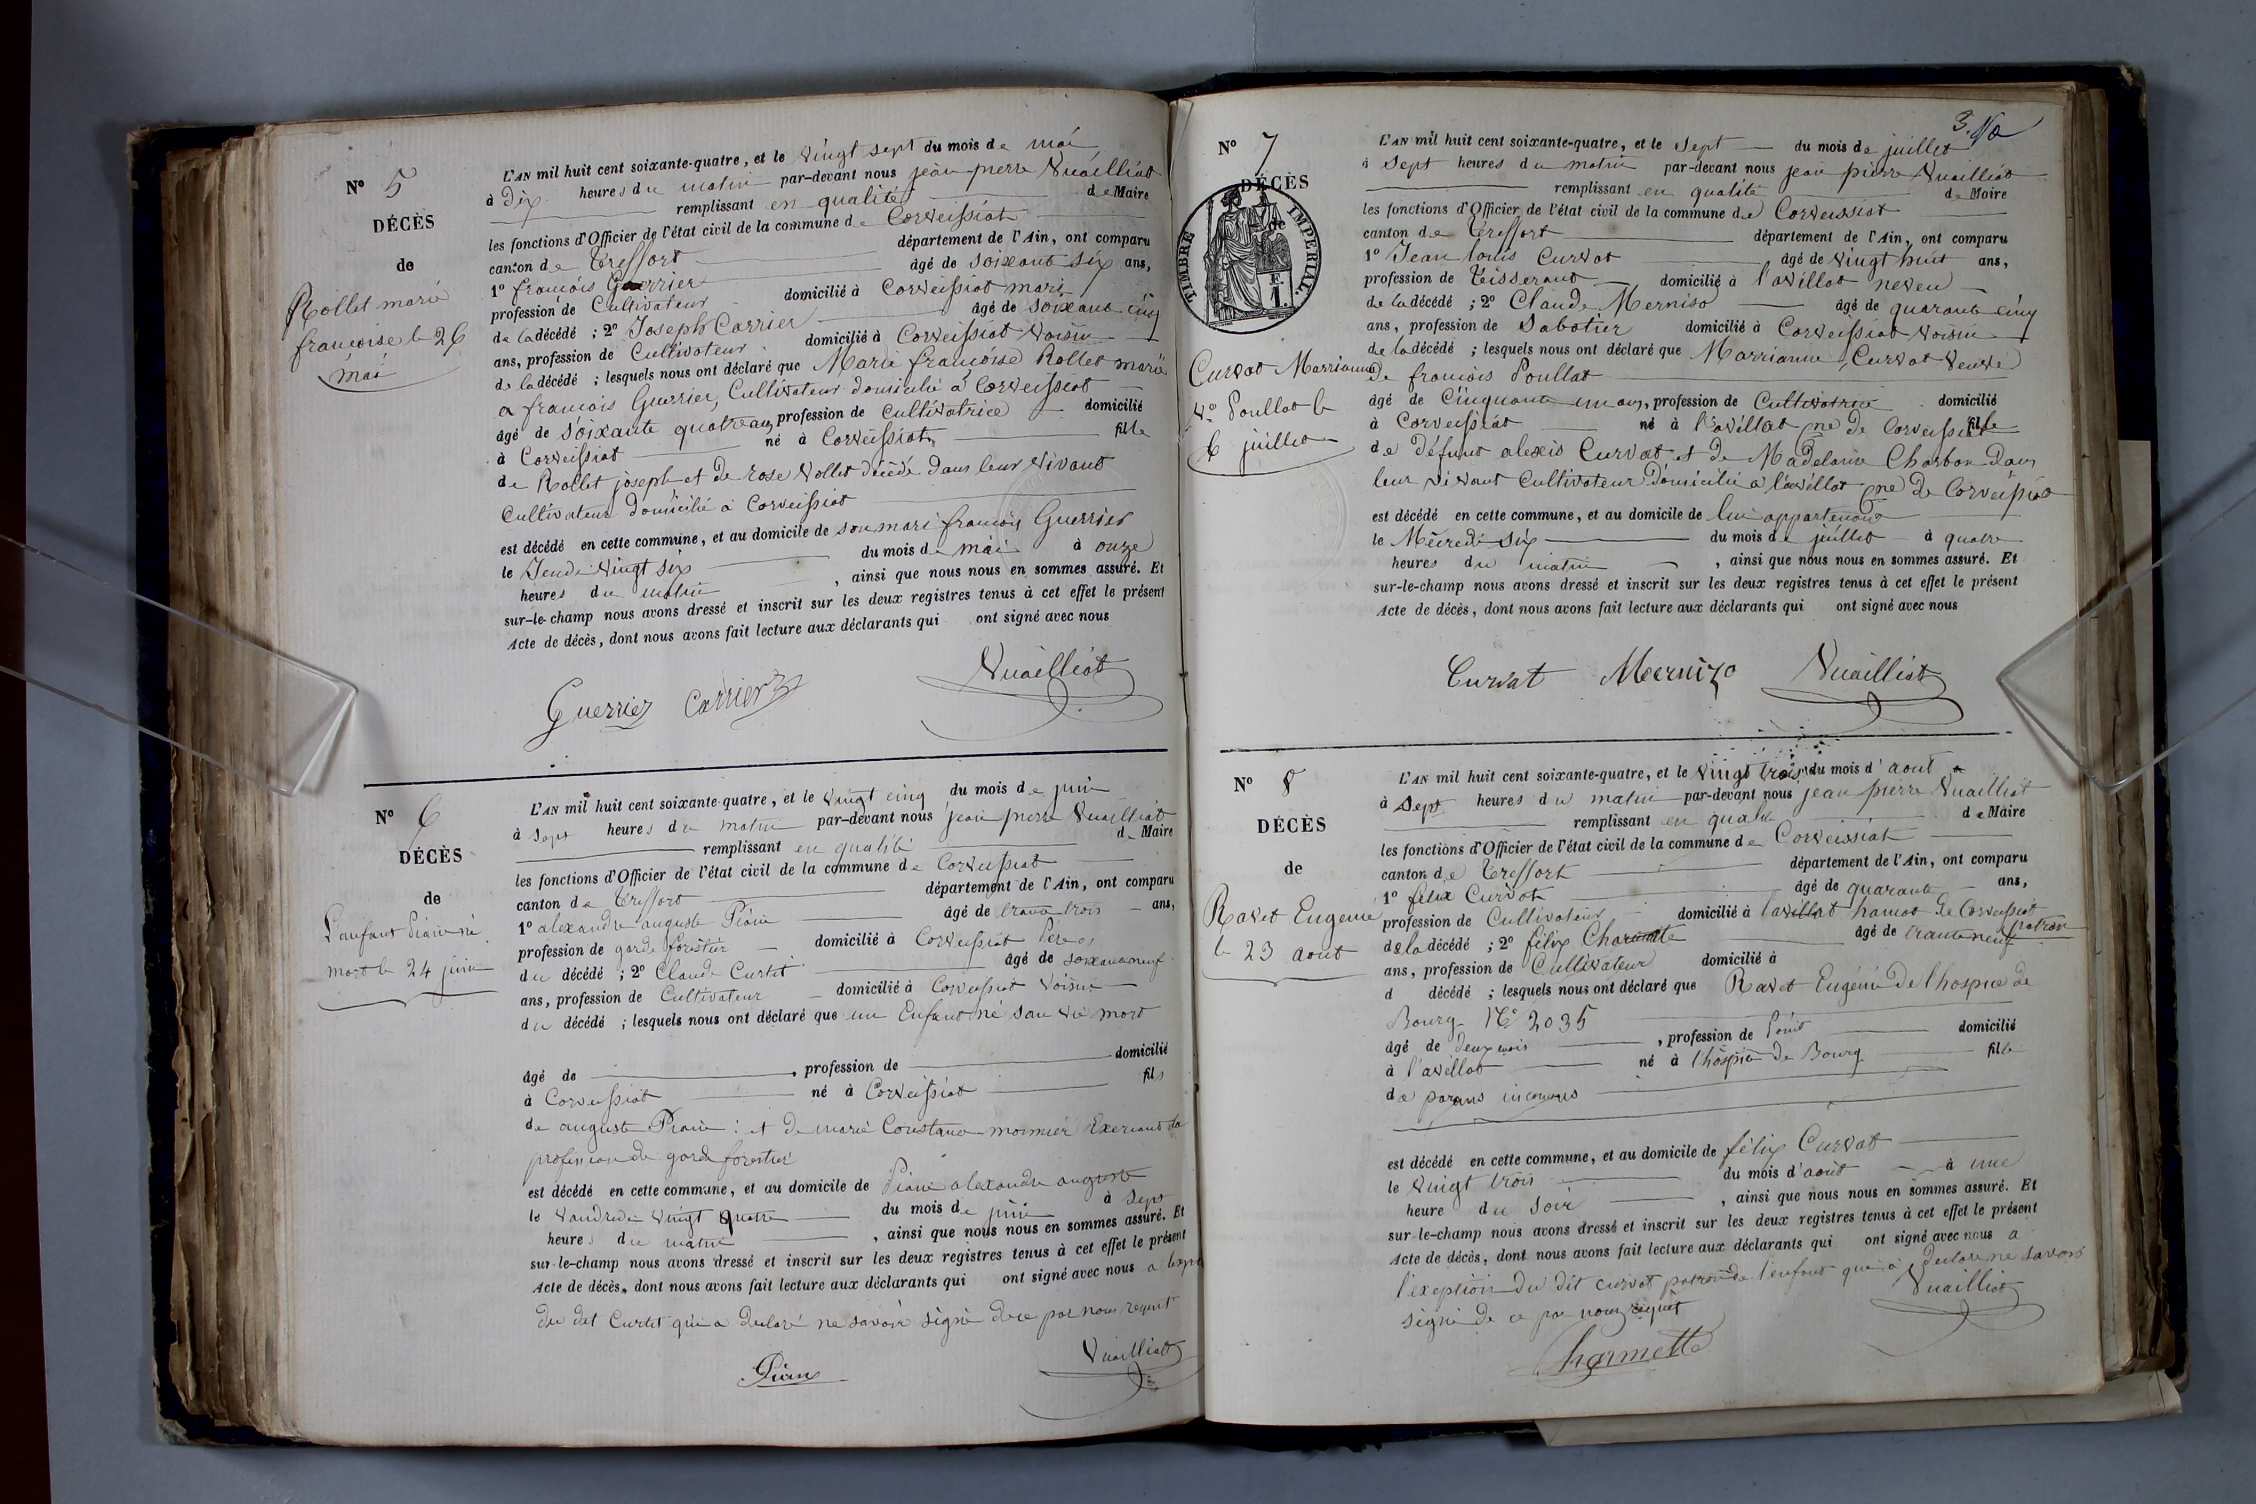 N° 5
DÉCÈS
de
Rollet marie
francoise le 26
mai
L'AN mil huit cent soixante-quatre, et le vingt sept du mois de mai
à Dix heures du matin par-devant nous jean pierre Vuailliat
remplissant en qualité de Maire
les fonctions d'Officier de l'état civil de la commune de Corveissiat
canton de Treffort département de l'Ain, ont comparu
1° francois Guerrier âgé de soixante six ans,
profession de Cultivateur domicilié à Corveissiat mari
de la décédé ; 2° Joseph Carrier âgé de soixante cinq
ans, profession de Cultivateur domicilié à Corveissiat voisin
de la décédé ; lesquels nous ont déclaré que Marie francoise Rollet mariée
a francois Guerrier, Cultivateur domicilié a Corveissiat
âgé de soixante quatre ans profession de cultivatrice domicilié
à Corveissiat né à Corveissiat fille
de Rollet joseph et de rose Vollet décédé dans leur vivant
Cultivateur domicilié a Corveissiat
est décédé en cette commune, et au domicile de son mari francois Guerrier
le Jeudi vingt six du mois de mai à onze
heures du matin , ainsi que nous nous en sommes assuré. Et
sur-le-champ nous avons dressé et inscrit sur les deux registres tenus à cet effet le présent
Acte de décès, dont nous avons fait lecture aux déclarants qui ont signé avec nous
Guerrier Carrier Vuailliat
N° 6
DÉCÈS
de
L'enfant Piane né
mort le 24 juin
L'AN mil huit cent soixante-quatre, et le vingt cinq du mois de juin
à sept heures du matin par-devant nous jean pierre Vuailliat
remplissant en qualité de Maire
les fonctions d'Officier de l'état civil de la commune de Corveissiat
canton de Treffort département de l'Ain, ont comparu
1° alexandre auguste Piane âgé de trante trois ans,
profession de garde forestier domicilié à Corveissiat Père
du décédé ; 2° Claude Curtet âgé de soixante neuf
ans, profession de Cultivateur domicilié à Corveissiat voisin
du décédé ; lesquels nous ont déclaré que un Enfant né san vie mort
âgé de , profession de domicilié
à Corveissiat né à Corveissiat fils
de auguste Piane : et de marie Constance monnier Exercant la
profession de garde forestier
est décédé en cette commune, et au domicile de Piane alexandre auguste
le Vandredi vingt quatre du mois de juin à sept
heures du matin , ainsi que nous nous en sommes assuré. Et
sur-le-champ nous avons dressé et inscrit sur les deux registres tenus à cet effet le présent
Acte de décès, dont nous avons fait lecture aux déclarants qui ont signé avec nous a
du dit Curtet qui a declaré ne savoir signé de ce par nous requit
Piane Vuailliat
3.
N° 7
DÉCÈS
de
TIMBRE IMPERIAL.
F. 1.
Curvat Marrianne
Ve Poullat le
6 juillet
L'AN mil huit cent soixante-quatre, et le sept du mois de juillet
à sept heures du matin par-devant nous jean pierre Vuailliat
remplissant en qualité de Maire
les fonctions d'Officier de l'état civil de la commune de Corveissiat
canton de Treffort département de l'Ain, ont comparu
1° Jean louis Curvat âgé de vingt huit ans,
profession de Tisserant domicilié à l'avillat neveu
de la décédé ; 2° Claude Mernizo âgé de quarante cinq
ans, profession de Sabotier domicilié à Corveissiat voisin
de la décédé ; lesquels nous ont déclaré que Marrianne Curvat veuve
de francois Poullat
âgé de Cinquante un ans, profession de Cultivatrice domicilié
à Corveissiat né à l'avillat Cne de Corveissiat fille
de Défunt alexis Curvat et de Madelaine Charbon dans
leur vivant Cultivateur Domicilié a l'avillat Cne de Corveissiat
est décédé en cette commune, et au domicile de lui appartenant
le Mécredi six du mois de juillet à quatre
heures du matin , ainsi que nous nous en sommes assuré. Et
sur-le-champ nous avons dressé et inscrit sur les deux registres tenus à cet effet le présent
Acte de décès, dont nous avons fait lecture aux déclarants qui ont signé avec nous
Curvat Mernizo Vuailliat
N° 8
DÉCÈS
de
Ravet Eugénie
le 23 aout
L'AN mil huit cent soixante-quatre, et le vingt trois du mois d'aout
à sept heures du matin par-devant nous jean pierre Vuailliat
remplissant en qualité de Maire
les fonctions d'Officier de l'état civil de la commune de Corveissiat
canton de Treffort département de l'Ain, ont comparu
1° félix Curvat âgé de quarante ans,
profession de Cultivateur domicilié à lavillat hamot de Corveissiat patron
de la décédé ; 2° félix Charmette âgé de trante neuf
ans, profession de Cultivateur domicilié à
d décédé ; lesquels nous ont déclaré que Ravet Eugénie de l'hospice de
Bourg N° 2035
âgé de deux mois , profession de Point domicilié
à l'avillat né à l'hospice de Bourg fille
de parans inconnus
est décédé en cette commune, et au domicile de félix Curvat
le vingt trois du mois d'aout à une
heure du soir , ainsi que nous nous en sommes assuré. Et
sur-le-champ nous avons dressé et inscrit sur les deux registres tenus à cet effet le présent
Acte de décès, dont nous avons fait lecture aux déclarants qui ont signé avec nous a
l'exeption du dit curvat patron de l'enfant qui a declaré ne savoir
signé de ce par nous requit Vuailliat
Charmette